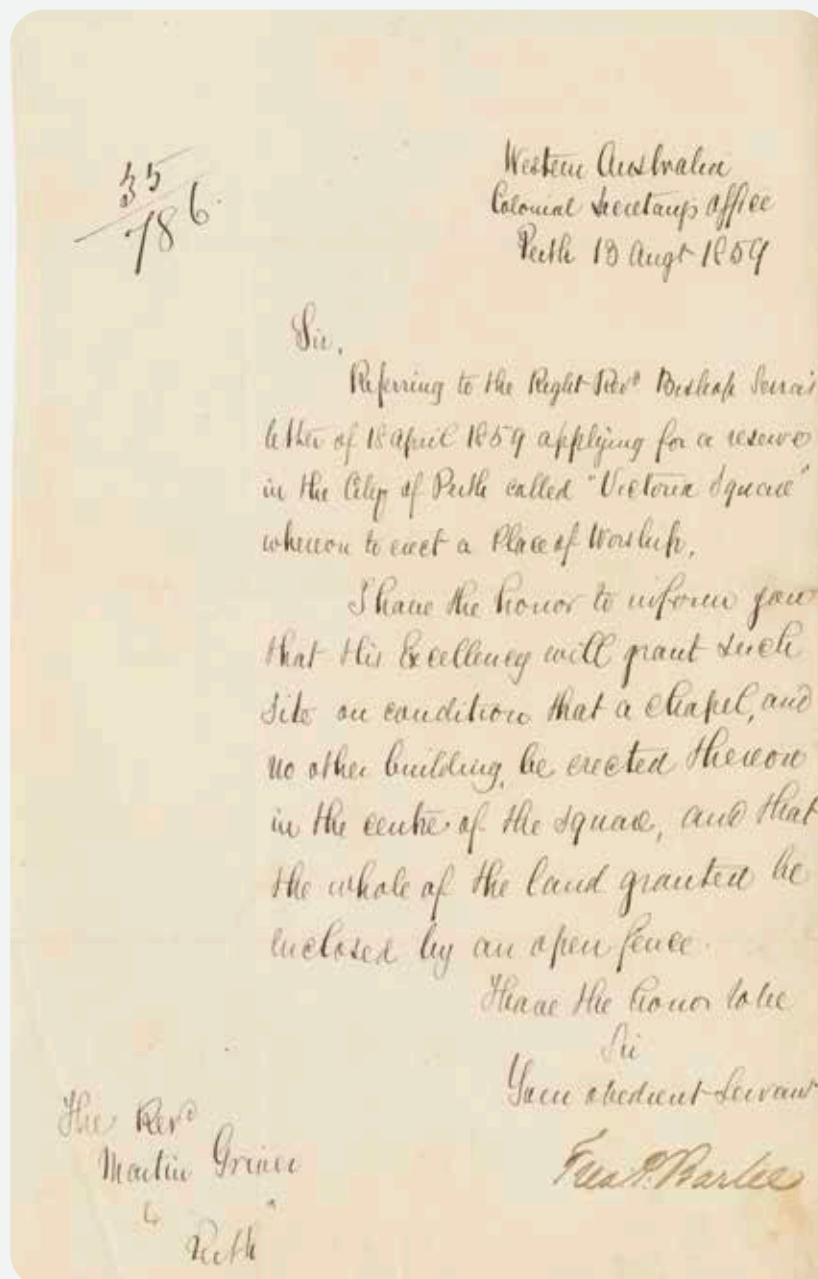 35
786
Western Australia
Colonial Secretarys Office
Perth 13 Augt 1859
Sir,
Referring to the Right Revd Bishop Serra's
letter of 18 April 1859 applying for a reserve
in the City of Perth called "Victoria Square"
whereon to erect a Place of Worship,
I have the honor to inform you
that His Excellency will grant such
site on condition that a chapel, and
no other building, be erected thereon
in the centre of the square, and that
the whole of the land granted be
enclosed by an open fence.
I have the honor to be
Sir
Your obedient Servant
Fred P. Barlee
The Revd
Martin Griver
Perth